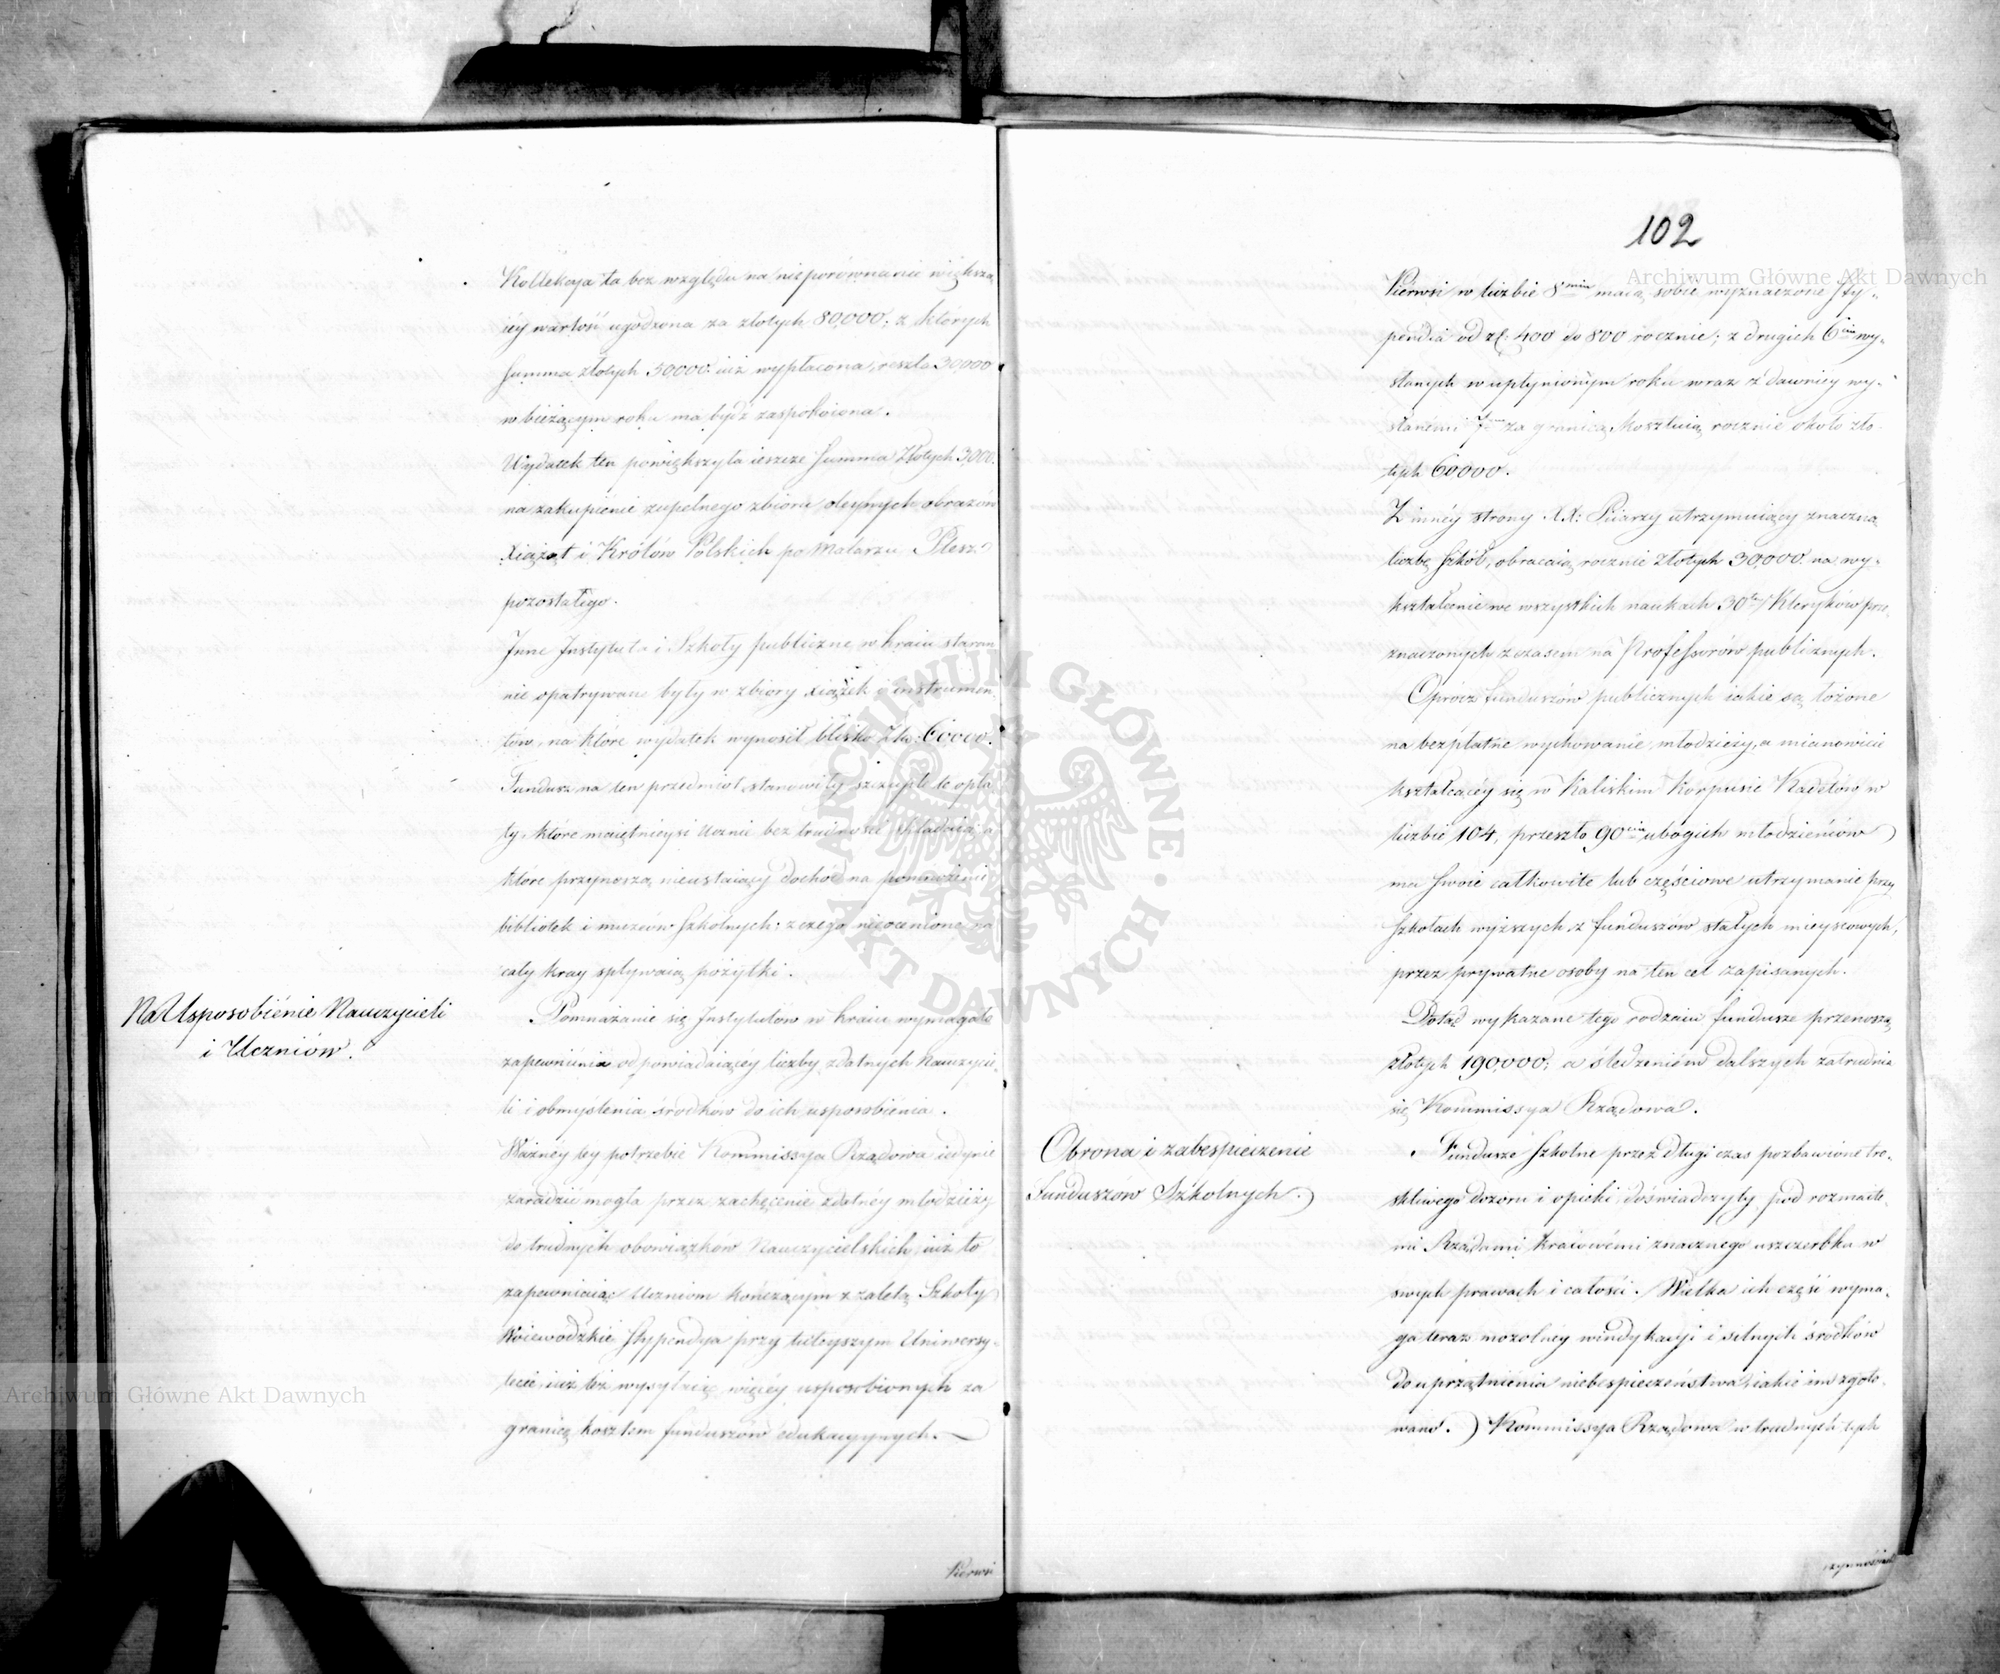 Kollekcya ta bez względu na nieporównanie większą
iéy wartość ugodzona za złotych 80,000; z których
summa złotych 50,000. iuż wypłacona, reszta 30000
w bieżącym roku ma bydź zaspokoiona.
Wydatek ten powiększyła ieszcze summa Złotych 3,000.
na zakupienie zupełnego zbioru oleynych obrazów
Xiążąt i Królów Polskich po Malarzu
pozostałego.
Inne Instytuta i Szkoły publiczne w kraiu staran
nie opatrywane były w zbiory xiążek i instrumen
tów, na które wydatek wynosił blisko Złp: 60000.
Fundusz na ten przedmiot stanowiły szczupłe te opła
ty, które maiętnieysi Ucznie bez trudności składaią, a
które przynoszą nieustaiący dochód na pomnożenie
bibliotek i muzeów Szkolnych; z czego nieocenione na
cały kray spływaią pożytki.
Na Usposobienie Nauczycieli
i Uczniów.
Pomnażanie się Instytutów w kraiu wymagało
zapewnienia odpowiadaiącéy liczby zdatnych Nauczycie-
li i obmyślenia środków do ich usposobienia.
Ważnéy téy potrzebie Kommissya Rządowa iedynie
zaradzić mogła przez zachęcenie zdatnéy młodzieży
do trudnych obowiązków Nauczycielskich, iuż to
zapewniaiąc Uczniom kończącym z zaletą Szkoły
Woiewódzkie Stypendya przy tuteyszym Uniwersy-
tecie, iuż też wysyłaiąc więcéy usposobionych za
granicę kosztem funduszów edukacyynych.
Pierwsi
102
Pierwsi w liczbie 8miu maią sobie wyznaczone sty-
pendia od zł. 400 do 800 rocznie; z drugich 6ciu wy-
słanych w upłynionym roku wraz z dawniéy wy-
słanemi 7miu za granicą kosztuią rocznie około zło
tych 60000.
Z innéy strony XX: Piiarzy utrzymuiący znaczną
liczbę szkół, obracaią rocznie Złotych 30,000. na wy-
kształcenie we wszystkich naukach 30tu Kleryków prze-
znaczonych z czasem na Professorów publicznych.
Oprócz funduszów publicznych iakie są łożone
na bezpłatne wychowanie młodzieży, a mianowicie
kształcącéy się w Kaliskim Korpusie Kadetów w
liczbie 104, przeszło 90ciu ubogich młodzieńców
ma swoie całkowite lub częściowe utrzymanie przy
Szkołach wyższych z funduszów stałych mieyscowych,
przez prywatne osoby na ten cel zapisanych.
Dotąd wykazane tego rodzaiu fundusze przenoszą
złotych 190,000; a śledzeniem dalszych zatrudnia
się Kommissya Rządowa.
Obrona i zabespieczenie
Funduszów Szkolnych.
Fundusze Szkolne przez długi czas pozbawione tro-
skliwego dozoru i opieki, doświadczyły pod rozmaite-
mi Rządami kraiowémi znacznego uszczerbku w
swych prawach i całości. Wielka ich część wyma-
ga teraz mozolnéy windykacyi i silnych środków
do uprzątnienia niebespieczeństwa, iakie im zgoto-
wano. Kommissya Rządowa w trudnych tych
czynnościach
Archiwum Główne Akt Dawnych
Archiwum Główne Akt Dawnych
ARCHIWUM GŁÓWNE · AKT DAWNYCH ·